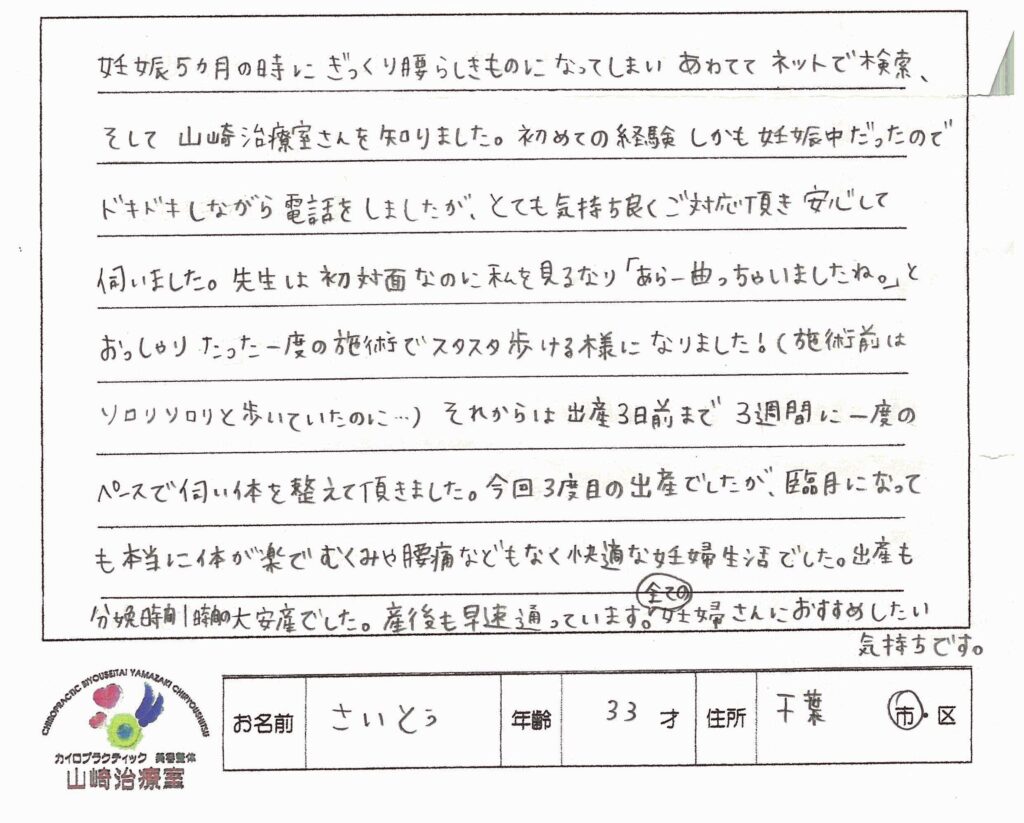 妊娠5カ月の時にぎっくり腰らしきものになってしまい あわてて ネットで検索、
そして 山崎治療室さんを知りました。初めての経験 しかも 妊娠中だったので
ドキドキしながら 電話をしましたが、とても気持ち良くご対応頂き 安心して
伺いました。先生は初対面なのに私を見るなり「あら〜曲っちゃいましたね。」と
おっしゃり たった一度の施術でスタスタ歩ける様になりました!(施術前は
ソロリソロリと歩いていたのに…) それからは出産3日前まで 3週間に一度の
ペースで伺い体を整えて頂きました。今回3度目の出産でしたが、臨月になって
も本当に体が楽でむくみや腰痛などもなく快適な妊婦生活でした。出産も
分娩時間1時間の大安産でした。産後も早速通っています。全ての妊婦さんにおすすめしたい
気持ちです。
CHIROPRACTIC BIYOUSEITAI YAMAZAKI CHIRYOUSHITSU
カイロプラクティック 美容整体
山崎治療室
お名前 さいとう 年齢 33才 住所 千葉 市・区